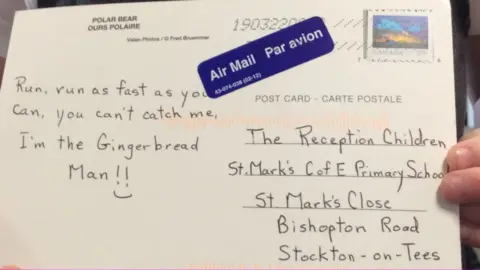 POLAR BEAR
OURS POLAIRE
Valan Photos / © Fred Bruemmer
Air Mail Par avion
POST CARD - CARTE POSTALE
Run, run as fast as you
can, you can't catch me,
I'm the Gingerbread
Man!!
The Reception Children
St. Mark's C of E Primary School
St. Mark's Close
Bishopton Road
Stockton-on-Tees